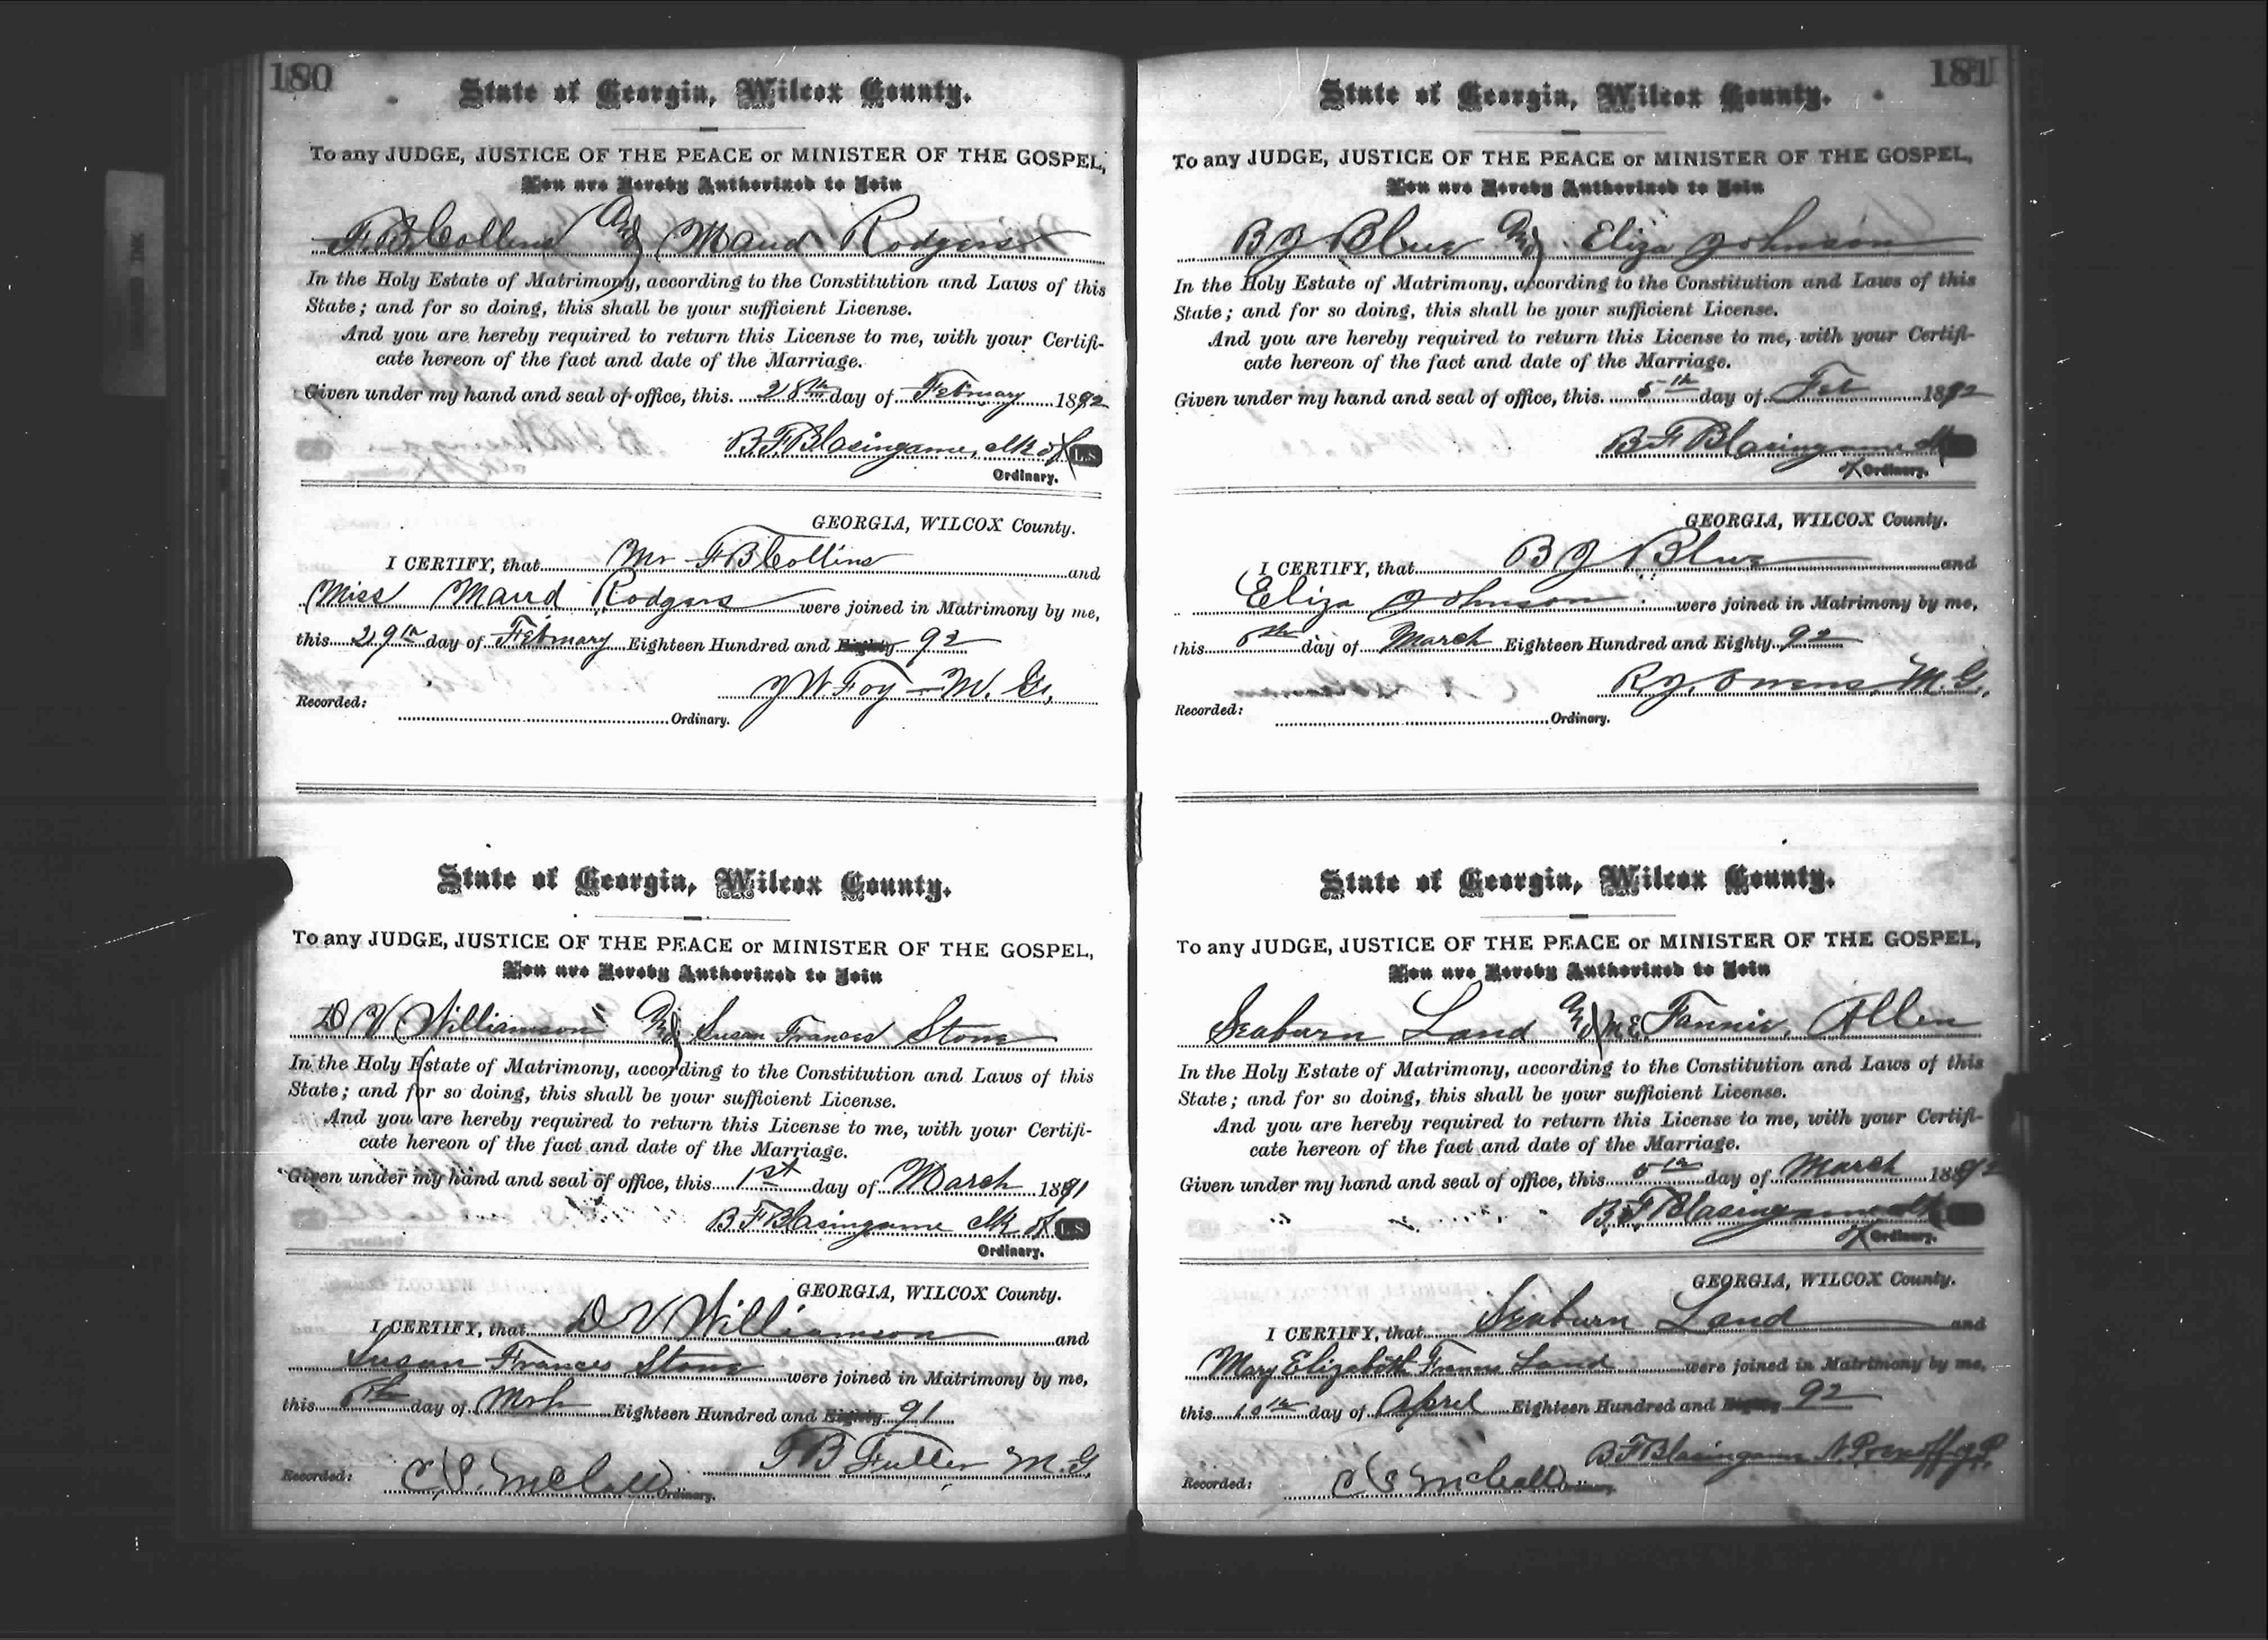 180
State of Georgia, Wilcox County.
To any JUDGE, JUSTICE OF THE PEACE or MINISTER OF THE GOSPEL,
You are Hereby Authorized to Join
F. B. Collins And Maud Rodgers
In the Holy Estate of Matrimony, according to the Constitution and Laws of this
State; and for so doing, this shall be your sufficient License.
And you are hereby required to return this License to me, with your Certifi-
cate hereon of the fact and date of the Marriage.
Given under my hand and seal of office, this 28th day of February 1892
B. F. Blasingame, Clk of L.S.
Ordinary.
GEORGIA, WILCOX County.
I CERTIFY, that Mr F B Collins and
Miss Maud Rodgers were joined in Matrimony by me,
this 29th day of February Eighteen Hundred and Eighty 92
J W Foy - M. G.
Recorded: Ordinary.
State of Georgia, Wilcox County.
To any JUDGE, JUSTICE OF THE PEACE or MINISTER OF THE GOSPEL,
You are Hereby Authorized to Join
D V Williamson And Susan Frances Stone
In the Holy Estate of Matrimony, according to the Constitution and Laws of this
State; and for so doing, this shall be your sufficient License.
And you are hereby required to return this License to me, with your Certifi-
cate hereon of the fact and date of the Marriage.
Given under my hand and seal of office, this 1st day of March 1891
B F Blasingame Clk of L.S
Ordinary.
GEORGIA, WILCOX County.
I CERTIFY, that D V Williamson and
Susan Frances Stone were joined in Matrimony by me,
this day of Mrh Eighteen Hundred and Eighty 91
T B Fuller M. G
Recorded: C. S. McCall Ordinary.
181
State of Georgia, Wilcox County.
To any JUDGE, JUSTICE OF THE PEACE or MINISTER OF THE GOSPEL,
You are Hereby Authorized to Join
B J Blue And Eliza Johnson
In the Holy Estate of Matrimony, according to the Constitution and Laws of this
State; and for so doing, this shall be your sufficient License.
And you are hereby required to return this License to me, with your Certifi-
cate hereon of the fact and date of the Marriage.
Given under my hand and seal of office, this 5th day of Feb 1892
B F Blasingame Clk
of Ordinary.
GEORGIA, WILCOX County.
I CERTIFY, that B J Blue and
Eliza Johnson were joined in Matrimony by me,
this day of March Eighteen Hundred and Eighty 92
R J. Owens, M. G.
Recorded: Ordinary.
State of Georgia, Wilcox County.
To any JUDGE, JUSTICE OF THE PEACE or MINISTER OF THE GOSPEL,
You are Hereby Authorized to Join
Seaburn Land And M. E. Fannie Allen
In the Holy Estate of Matrimony, according to the Constitution and Laws of this
State; and for so doing, this shall be your sufficient License.
And you are hereby required to return this License to me, with your Certifi-
cate hereon of the fact and date of the Marriage.
Given under my hand and seal of office, this 5th day of March 1892
B. F Blasingame Clk
of Ordinary.
GEORGIA, WILCOX County.
I CERTIFY, that Seaburn Land and
Mary Elizabeth Frances Land were joined in Matrimony by me,
this 10th day of April Eighteen Hundred and Eighty 92
B F Blasingame N. P. & exoff J. P.
Recorded: C S McCall Ordinary.